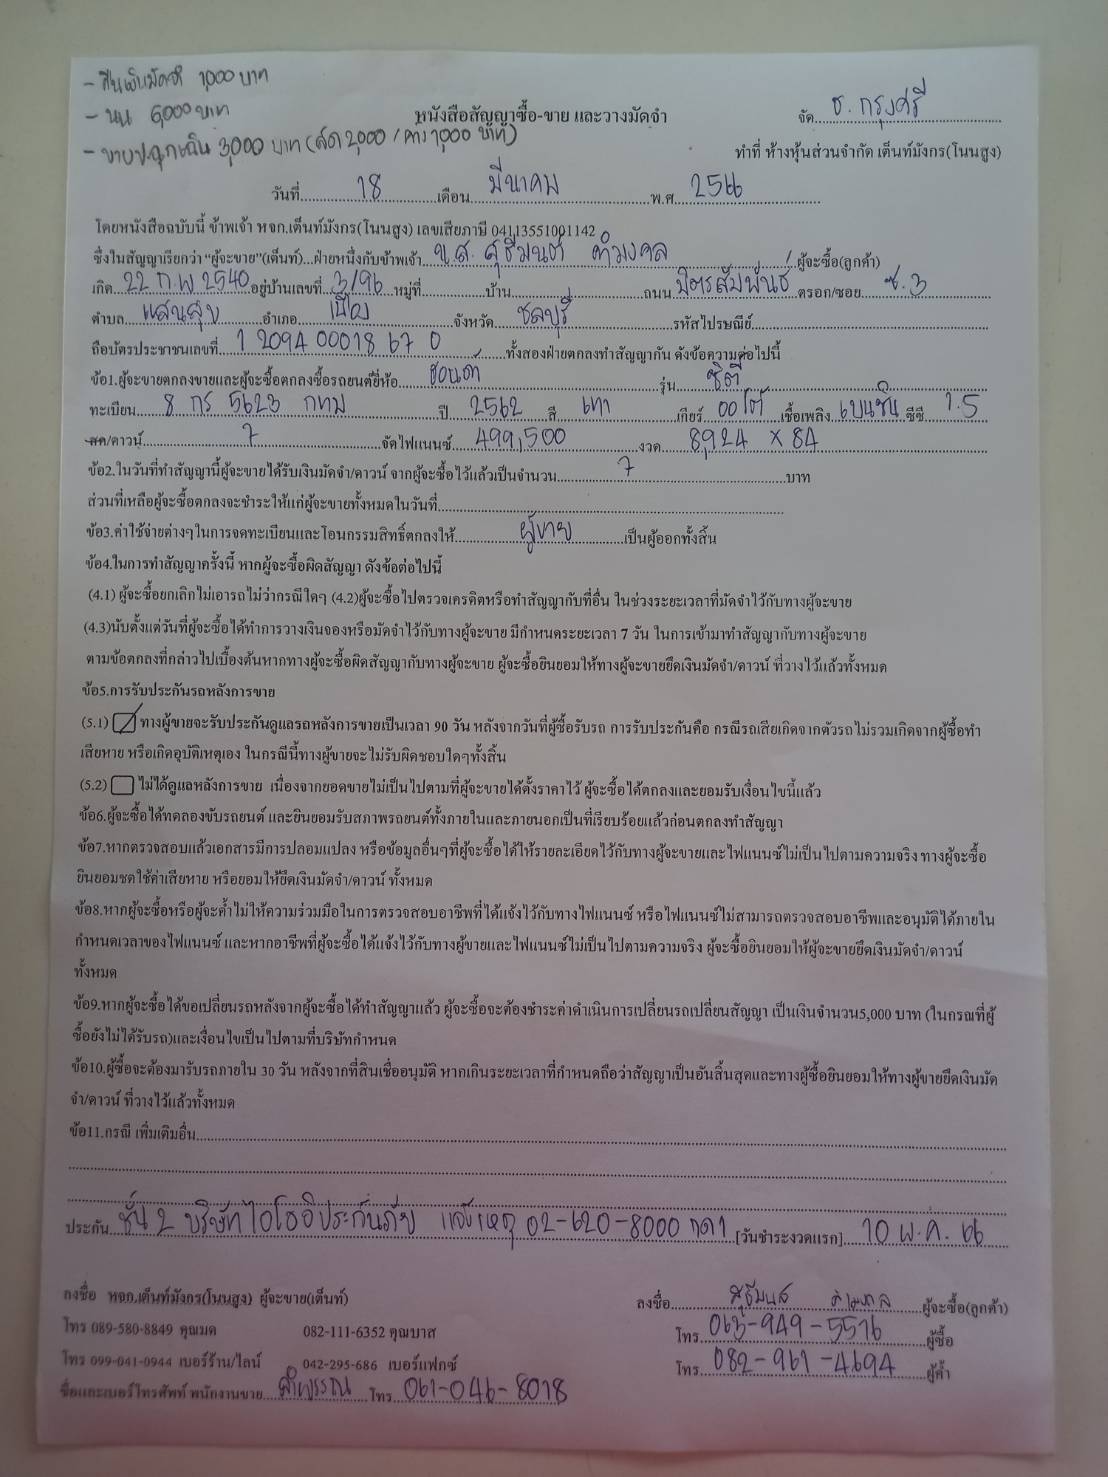 - คืนเงินมัดจำ 1,000 บาท
- นน 6,000 บาท
- ขายปลุกเฉิน 3,000 บาท (สด 2,000 / คาร 1,000 บาท)
หนังสือสัญญาซื้อ-ขาย และวางมัดจำ
จัด ธ. กรุงศรี
ทำที่ ห้างหุ้นส่วนจำกัด เต็นท์มังกร(โนนสูง)
วันที่ 18 เดือน มีนาคม พ.ศ. 2566
โดยหนังสือฉบับนี้ ข้าพเจ้า หจก.เต็นท์มังกร(โนนสูง) เลขเสียภาษี 04113551001142
ซึ่งในสัญญาเรียกว่า "ผู้จะขาย"(เต็นท์)...ฝ่ายหนึ่งกับข้าพเจ้า น.ส. สุธีมนต์ คำมงคล ผู้จะซื้อ(ลูกค้า)
เกิด 22 ก.พ 2540 อยู่บ้านเลขที่ 3/96 หมู่ที่ บ้าน ถนน มิตรสัมพันธ์ ตรอก/ซอย ซ.3
ตำบล แสนสุข อำเภอ เมือง จังหวัด ชลบุรี รหัสไปรษณีย์
ถือบัตรประชาชนเลขที่ 1 2094 00018 67 0 ทั้งสองฝ่ายตกลงทำสัญญากัน ดังข้อความต่อไปนี้
ข้อ1.ผู้จะขายตกลงขายและผู้จะซื้อตกลงซื้อรถยนต์ยี่ห้อ ฮอนด้า รุ่น ซิตี้
ทะเบียน 8 กร 5623 กทม ปี 2562 สี เทา เกียร์ ออโต้ เชื้อเพลิง เบนซิน ซีซี 1.5
สด/ดาวน์ 7 จัดไฟแนนซ์ 499,500 งวด 8,924 x 84
ข้อ2.ในวันที่ทำสัญญานี้ผู้จะขายได้รับเงินมัดจำ/ดาวน์ จากผู้จะซื้อไว้แล้วเป็นจำนวน 7 บาท
ส่วนที่เหลือผู้จะซื้อตกลงจะชำระให้แก่ผู้จะขายทั้งหมดในวันที่
ข้อ3.ค่าใช้จ่ายต่างๆในการจดทะเบียนและโอนกรรมสิทธิ์ตกลงให้ ผู้ขาย เป็นผู้ออกทั้งสิ้น
ข้อ4.ในการทำสัญญาครั้งนี้ หากผู้จะซื้อผิดสัญญา ดังข้อต่อไปนี้
(4.1) ผู้จะซื้อยกเลิกไม่เอารถไม่ว่ากรณีใดๆ (4.2)ผู้จะซื้อไปตรวจเครดิตหรือทำสัญญากับที่อื่น ในช่วงระยะเวลาที่มัดจำไว้กับทางผู้จะขาย
(4.3)นับตั้งแต่วันที่ผู้จะซื้อได้ทำการวางเงินจองหรือมัดจำไว้กับทางผู้จะขาย มีกำหนดระยะเวลา 7 วัน ในการเข้ามาทำสัญญากับทางผู้จะขาย
ตามข้อตกลงที่กล่าวไปเบื้องต้นหากทางผู้จะซื้อผิดสัญญากับทางผู้จะขาย ผู้จะซื้อยินยอมให้ทางผู้จะขายยึดเงินมัดจำ/ดาวน์ ที่วางไว้แล้วทั้งหมด
ข้อ5.การรับประกันรถหลังการขาย
(5.1) ทางผู้ขายจะรับประกันดูแลรถหลังการขายเป็นเวลา 90 วัน หลังจากวันที่ผู้ซื้อรับรถ การรับประกันคือ กรณีรถเสียเกิดจากตัวรถไม่รวมเกิดจากผู้ซื้อทำ
เสียหาย หรือเกิดอุบัติเหตุเอง ในกรณีนี้ทางผู้ขายจะไม่รับผิดชอบใดๆทั้งสิ้น
(5.2) ไม่ได้ดูแลหลังการขาย เนื่องจากยอดขายไม่เป็นไปตามที่ผู้จะขายได้ตั้งราคาไว้ ผู้จะซื้อได้ตกลงและยอมรับเงื่อนไขนี้แล้ว
ข้อ6.ผู้จะซื้อได้ทดลองขับรถยนต์ และยินยอมรับสภาพรถยนต์ทั้งภายในและภายนอกเป็นที่เรียบร้อยแล้วก่อนตกลงทำสัญญา
ข้อ7.หากตรวจสอบแล้วเอกสารมีการปลอมแปลง หรือข้อมูลอื่นๆที่ผู้จะซื้อได้ให้รายละเอียดไว้กับทางผู้จะขายและไฟแนนซ์ไม่เป็นไปตามความจริง ทางผู้จะซื้อ
ยินยอมชดใช้ค่าเสียหาย หรือยอมให้ยึดเงินมัดจำ/ดาวน์ ทั้งหมด
ข้อ8.หากผู้จะซื้อหรือผู้จะค้ำไม่ให้ความร่วมมือในการตรวจสอบอาชีพที่ได้แจ้งไว้กับทางไฟแนนซ์ หรือไฟแนนซ์ไม่สามารถตรวจสอบอาชีพและอนุมัติได้ภายใน
กำหนดเวลาของไฟแนนซ์ และหากอาชีพที่ผู้จะซื้อได้แจ้งไว้กับทางผู้ขายและไฟแนนซ์ไม่เป็นไปตามความจริง ผู้จะซื้อยินยอมให้ผู้จะขายยึดเงินมัดจำ/ดาวน์
ทั้งหมด
ข้อ9.หากผู้จะซื้อได้ขอเปลี่ยนรถหลังจากผู้จะซื้อได้ทำสัญญาแล้ว ผู้จะซื้อจะต้องชำระค่าดำเนินการเปลี่ยนรถเปลี่ยนสัญญา เป็นเงินจำนวน5,000 บาท (ในกรณที่ผู้
ซื้อยังไม่ได้รับรถ)และเงื่อนไขเป็นไปตามที่บริษัทกำหนด
ข้อ10.ผู้ซื้อจะต้องมารับรถภายใน 30 วัน หลังจากที่สินเชื่ออนุมัติ หากเกินระยะเวลาที่กำหนดถือว่าสัญญาเป็นอันสิ้นสุดและทางผู้ซื้อยินยอมให้ทางผู้ขายยึดเงินมัด
จำ/ดาวน์ ที่วางไว้แล้วทั้งหมด
ข้อ11.กรณี เพิ่มเติมอื่น
ประกัน ชั้น 2 บริษัท ไอโออิประกันภัย แจ้งเหตุ 02-620-8000 กด1 [วันชำระงวดแรก] 10 พ.ค. 66
ลงชื่อ หจก.เต็นท์มังกร(โนนสูง) ผู้จะขาย(เต็นท์)
ลงชื่อ สุธีมนต์ คำมงคล ผู้จะซื้อ(ลูกค้า)
โทร 089-580-8849 คุณมด 082-111-6352 คุณบาส
โทร 063-949-5516 ผู้ซื้อ
โทร 099-041-0944 เบอร์ร้าน/ไลน์ 042-295-686 เบอร์แฟกซ์
โทร 082-961-4694 ผู้ค้ำ
ชื่อและเบอร์โทรศัพท์ พนักงานขาย โทร 061-046-8018